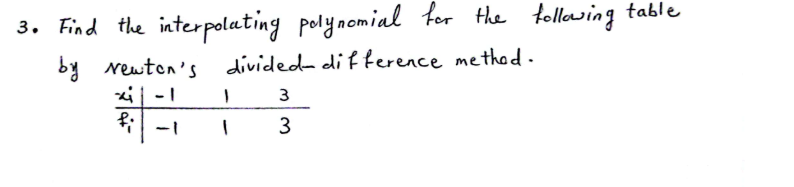 3. Find the interpolating polynomial for the following table
by Newton's divided-difference method.
xi | -1 1 3
fi | -1 1 3